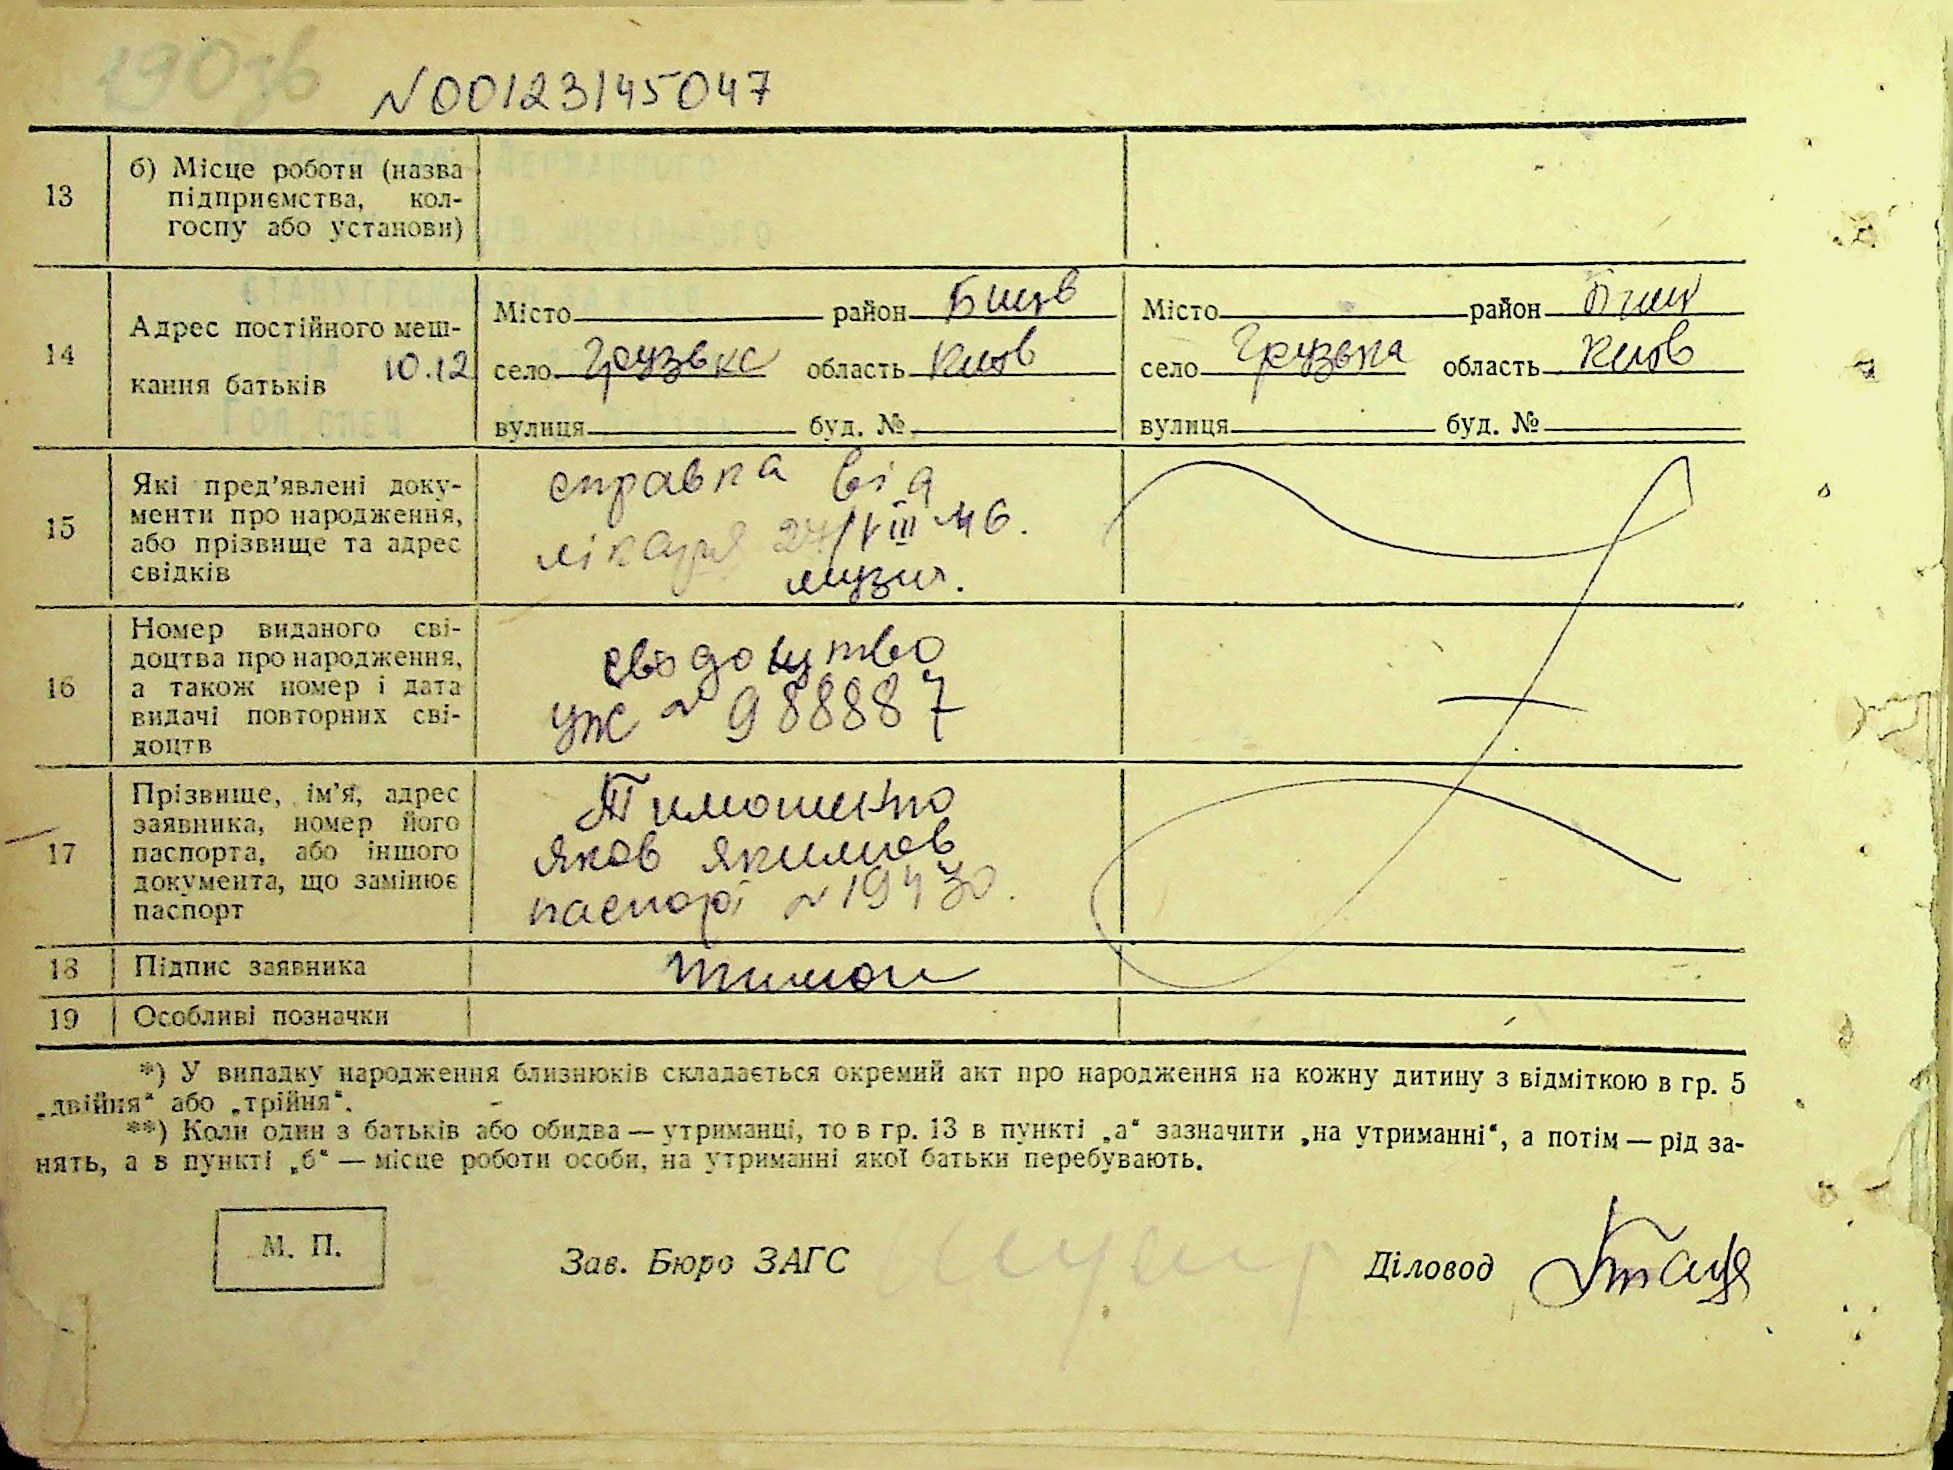 N00123145047
13 б) Місце роботи (назва
підприємства, кол-
госпу або установи)
14 Адрес постійного меш-
кання батьків 10.12
Місто район Бишів
село Грузьке область Київ
вулиця буд. №
Місто район Биш
село Грузька область Київ
вулиця буд. №
15 Які пред'явлені доку-
менти про народження,
або прізвище та адрес
свідків
справка від
лікаря 24/VIII 46.
музич.
16 Номер виданого сві-
доцтва про народження,
а також номер і дата
видачі повторних сві-
доцтв
свідоцтво
УЖ N 988887
17 Прізвище, ім'я, адрес
заявника, номер його
паспорта, або іншого
документа, що замінює
паспорт
Тимошенко
Яков Якимов
паспорт N 19430.
18 Підпис заявника Тимош
19 Особливі позначки
*) У випадку народження близнюків складається окремий акт про народження на кожну дитину з відміткою в гр. 5
„двійня“ або „трійня“.
**) Коли один з батьків або обидва — утриманці, то в гр. 13 в пункті „а“ зазначити „на утриманні“, а потім — рід за-
нять, а в пункті „б“ — місце роботи особи, на утриманні якої батьки перебувають.
М. П. Зав. Бюро ЗАГС Діловод